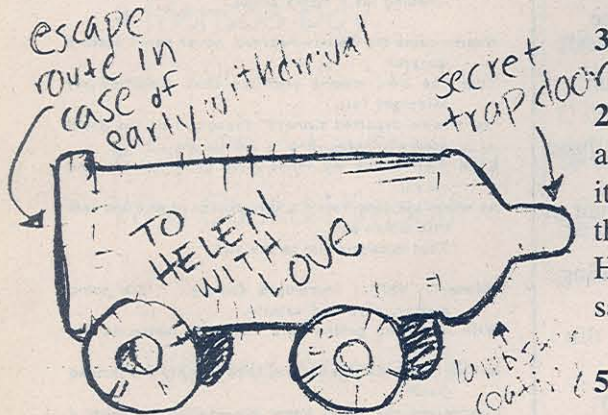 escape
route in
case of
early withdrawal
secret
trap door
TO
HELEN
WITH
LOVE
lambskin
3
2
a
i
th
H
s
5